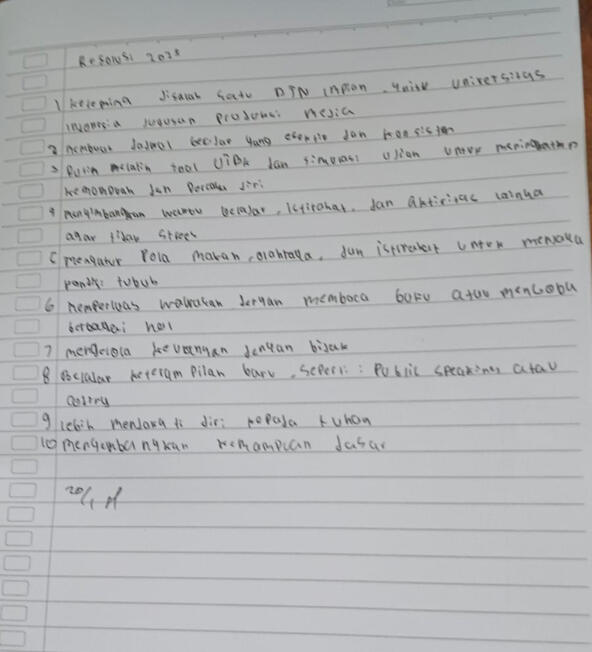 Resolusi 2025
1 keterima disalah satu PTN impian, yaitu universitas
indonesia jurusan produksi media
2 membuat jadwal belajar yang efektif dan konsisten
3 Rutin melatih soal UTBK dan simulasi ujian untuk meningkatkan
kemampuan dan percaya diri
4 menyimbangkan waktu belajar, istirahat, dan aktivitas lainya
agar tidak stress
5 mengatur pola makan, olahraga, dan istirahat untuk menjaga
kondisi tubuh
6 memperluas wawasan dengan membaca buku atau mencoba
berbagai hal
7 mengelola keuangan dengan bijak
8 Belajar keterampilan baru, seperti: Public speaking atau
9 lebih mendekati diri kepada tuhan
10 mengembangkan kemampuan dasar
20/1